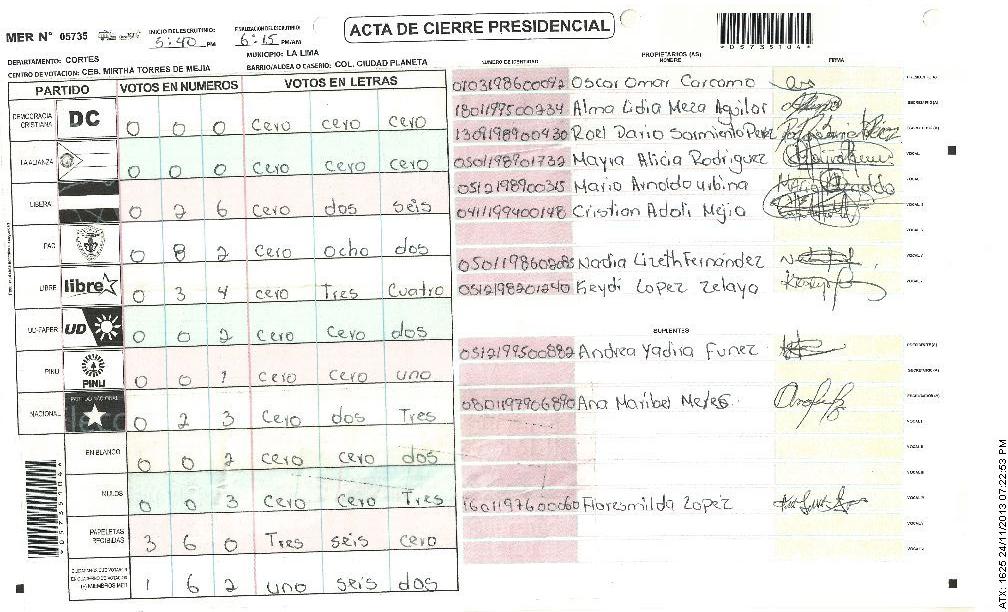 MER Nº 05735
INICIO DEL ESCRUTINIO: 5:40 PM
FINALIZACION DEL ESCRUTINIO: 6:15 PM/AM
ACTA DE CIERRE PRESIDENCIAL
*05735104*
DEPARTAMENTO: CORTES
MUNICIPIO: LA LIMA
CENTRO DE VOTACION: CEB. MIRTHA TORRES DE MEJIA
BARRIO/ALDEA O CASERIO: COL. CIUDAD PLANETA
PARTIDO VOTOS EN NUMEROS VOTOS EN LETRAS
DEMOCRACIA CRISTIANA DC 0 0 0 cero cero cero
LA ALIANZA 0 0 0 cero cero cero
LIBERAL 0 2 6 cero dos seis
PAC 0 8 2 cero ocho dos
LIBRE libre 0 3 4 cero Tres cuatro
UD-FAPER UD 0 0 2 cero cero dos
PINU PINU 0 0 1 cero cero uno
NACIONAL PARTIDO NACIONAL 0 2 3 cero dos Tres
EN BLANCO 0 0 2 cero cero dos
NULOS 0 0 3 cero cero Tres
PAPELETAS RECIBIDAS 3 6 0 Tres seis cero
CIUDADANOS QUE VOTARON 1 6 2 uno seis dos
PROPIETARIOS (AS)
NUMERO DE IDENTIDAD NOMBRE FIRMA
0103198600092 Oscar Omar Carcamo
1801199500234 Alma Lidia Meza Aguilar
1309198900430 Roel Dario Sarmiento Perez
0501198901732 Mayra Alicia Rodriguez VOCAL I
0512198900315 Mario Arnoldo urbina
0411199400148 Cristian Adoli Mejia
0501198602085 Nadia Lizeth Fernández
0512198201240 Keydi Lopez Zelaya
SUPLENTES
0512199500882 Andrea Yadira Funez
0801197906890 Ana Maribel Meyes
1601197600060 Floresmilda Lopez
ATX: 1625 24/11/2013 07:22:53 PM